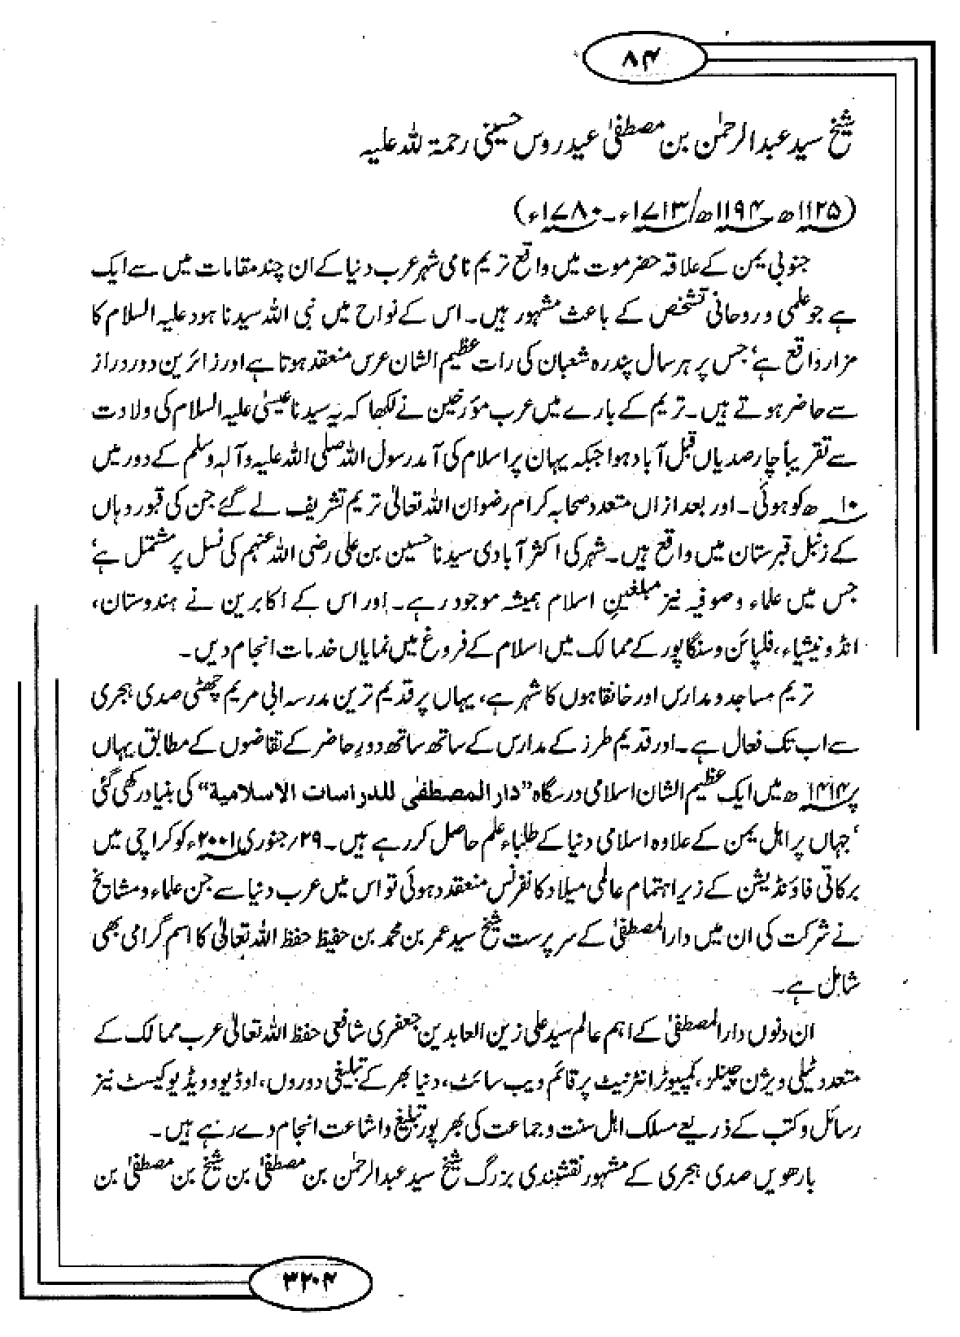 ۸۴
شیخ سید عبدالرحمٰن بن مصطفیٰ عیدروس حسینی رحمۃ اللہ علیہ
(۱۱۲۵ھ۔۱۱۹۴ھ/۱۷۱۳ء۔۱۷۸۰ء)
جنوبی یمن کے علاقہ حضرموت میں واقع تریم نامی شہر عرب دنیا کے ان چند مقامات میں سے ایک
ہے جو علمی و روحانی تشخص کے باعث مشہور ہیں۔ اس کے نواح میں نبی اللہ سیدنا ہود علیہ السلام کا
مزار واقع ہے‘ جس پر ہر سال پندرہ شعبان کی رات عظیم الشان عرس منعقد ہوتا ہے اور زائرین دور دراز
سے حاضر ہوتے ہیں۔ تریم کے بارے میں عرب مؤرخین نے لکھا کہ یہ سیدنا عیسیٰ علیہ السلام کی ولادت
سے تقریباً چار صدیاں قبل آباد ہوا جبکہ یہان پر اسلام کی آمد رسول اللہ صلی اللہ علیہ وآلہ وسلم کے دور میں
۱۰ھ کو ہوئی۔ اور بعد ازاں متعدد صحابہ کرام رضوان اللہ تعالیٰ تریم تشریف لے گئے جن کی قبور وہاں
کے زنبل قبرستان میں واقع ہیں۔ شہر کی اکثر آبادی سیدنا حسین بن علی رضی اللہ عنہم کی نسل پر مشتمل ہے‘
جس میں علماء و صوفیہ نیز مبلغینِ اسلام ہمیشہ موجود رہے۔ اور اس کے اکابرین نے ہندوستان،
انڈونیشیاء، فلپائن و سنگاپور کے ممالک میں اسلام کے فروغ میں نمایاں خدمات انجام دیں۔
تریم مساجد و مدارس اور خانقاہوں کا شہر ہے، یہاں پر قدیم ترین مدرسہ ابی مریم چھٹی صدی ہجری
سے اب تک فعال ہے۔ اور قدیم طرز کے مدارس کے ساتھ ساتھ دورِ حاضر کے تقاضوں کے مطابق یہاں
پر ۱۴۱۴ھ میں ایک عظیم الشان اسلامی درسگاہ ”دار المصطفی للدراسات الاسلامیة“ کی بنیاد رکھی گئی
‘جہاں پر اہل یمن کے علاوہ اسلامی دنیا کے طلباء علم حاصل کر رہے ہیں۔ ۲۹؍جنوری ۲۰۰۱ء کو کراچی میں
برکاتی فاؤنڈیشن کے زیر اہتمام عالمی میلاد کانفرنس منعقد ہوئی تو اس میں عرب دنیا سے جن علماء و مشائخ
نے شرکت کی ان میں دارالمصطفیٰ کے سرپرست شیخ سید عمر بن محمد بن حفیظ حفظ اللہ تعالیٰ کا اسم گرامی بھی
شامل ہے۔
ان دنوں دارالمصطفیٰ کے اہم عالم سید علی زین العابدین جعفری شافعی حفظ اللہ تعالیٰ عرب ممالک کے
متعدد ٹیلی ویژن چینلز، کمپیوٹر انٹرنیٹ پر قائم ویب سائٹ، دنیا بھر کے تبلیغی دوروں، اوڈیو و ویڈیو کیسٹ نیز
رسائل و کتب کے ذریعے مسلک اہل سنت و جماعت کی بھرپور تبلیغ و اشاعت انجام دے رہے ہیں۔
بارھویں صدی ہجری کے مشہور نقشبندی بزرگ شیخ سید عبدالرحمٰن بن مصطفیٰ بن شیخ بن مصطفیٰ بن
۳۲۰۴